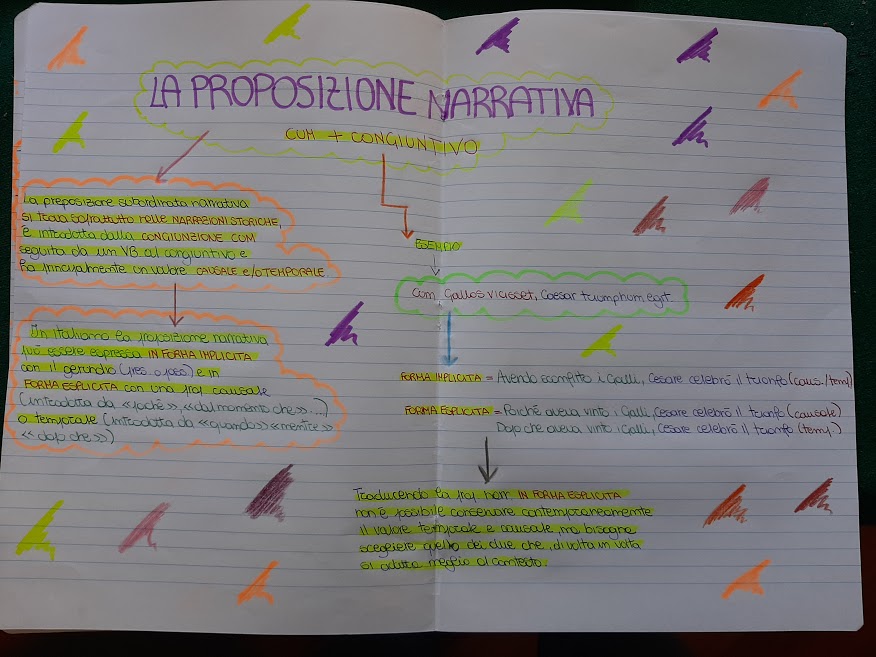 LA PROPOSIZIONE NARRATIVA
CUM + CONGIUNTIVO
La preposizione subordinata narrativa
si trova soprattutto nelle NARRAZIONI STORICHE,
è introdotta dalla CONGIUNZIONE CUM
seguita da un VB al congiuntivo e
ha principalmente un valore CAUSALE e/o TEMPORALE.
In italiano la proposizione narrativa
può essere espressa IN FORMA IMPLICITA
con il gerundio (pres. o pass) e in
FORMA ESPLICITA con una prop causale
(introdotta da «poiché», «dal momento che»...)
o temporale (introdotta da «quando» «mentre»
«dopo che»)
ESEMPIO
Cum Gallos vicisset, Caesar triumphum egit.
FORMA IMPLICITA = Avendo sconfitto i Galli, Cesare celebrò il trionfo (caus./temp)
FORMA ESPLICITA = Poiché aveva vinto i Galli, Cesare celebrò il trionfo (causale)
Dopo che aveva vinto i Galli, Cesare celebrò il trionfo (temp.)
Traducendo la prop narr IN FORMA ESPLICITA
non è possibile conservare contemporaneamente
il valore temporale e causale, ma bisogna
scegliere quello dei due che, di volta in volta
si adatta meglio al contesto.